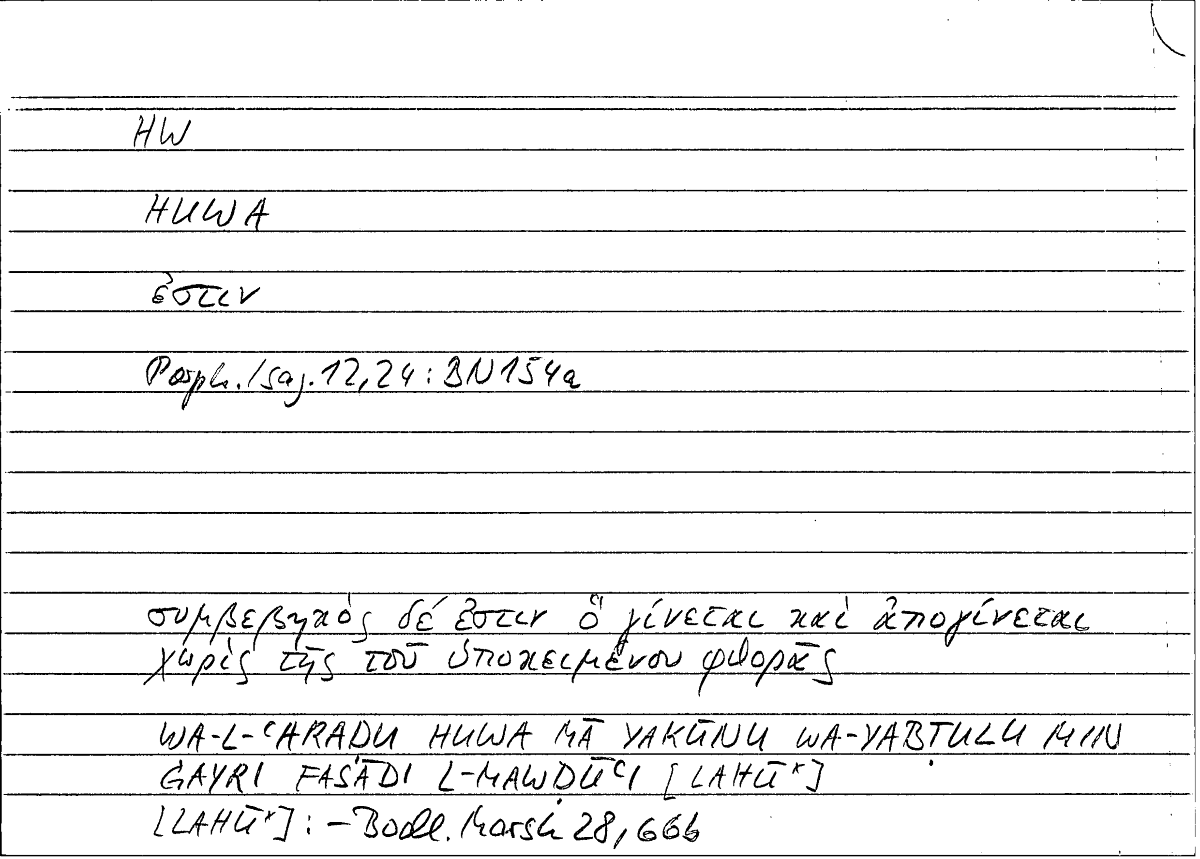 HW
HUWA
ἐστιν
Porph. Isag. 12,24: BN 154a
συμβεβηκός δέ ἐστιν ὅ γίνεται καὶ ἀπογίνεται
χωρὶς τῆς τοῦ ὑποκειμένου φθορᾶς
WA-L-ʿARAḌU HUWA MĀ YAKŪNU WA-YABṬULU MIN
ĠAYRI FASĀDI L-MAWḌŪʿI [LAHŪ*]
[LAHŪ*]: – Bodl. Marsh 28, 66b